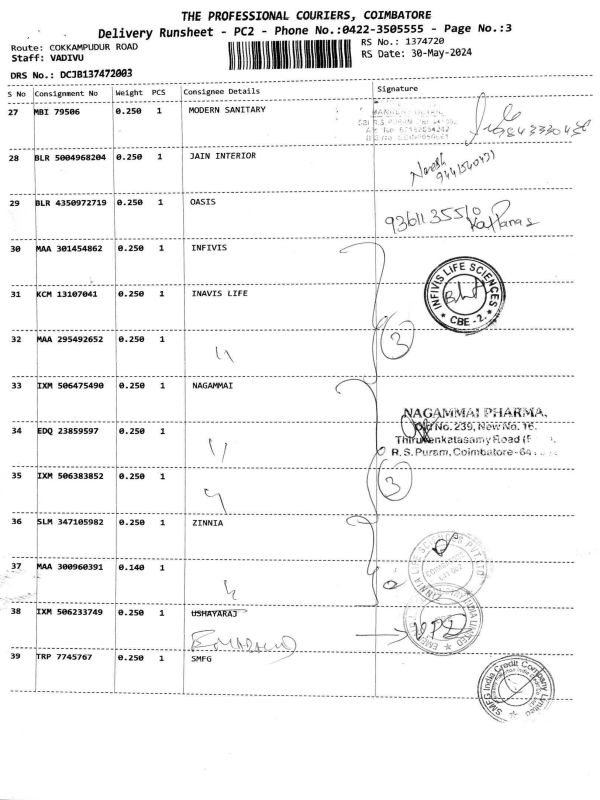 THE PROFESSIONAL COURIERS, COIMBATORE
Delivery Runsheet - PC2 - Phone No.:0422-3505555 - Page No.:3
Route: COKKAMPUDUR ROAD
RS No.: 1374720
Staff: VADIVU
RS Date: 30-May-2024
DRS No.: DCJB137472003
S No Consignment No Weight PCS Consignee Details Signature
27 MBI 79506 0.250 1 MODERN SANITARY
28 BLR 5004968204 0.250 1 JAIN INTERIOR
Naresh
9441540431
29 BLR 4350972719 0.250 1 OASIS
9361135510
30 MAA 301454862 0.250 1 INFIVIS
31 KCM 13107041 0.250 1 INAVIS LIFE
INFIVIS LIFE SCIENCES
★ CBE - 2. ★
32 MAA 295492652 0.250 1
3
33 IXM 506475490 0.250 1 NAGAMMAI
NAGAMMAI PHARMA,
Old No. 239, New No. 16,
Thiruvenkatasamy Road
R.S. Puram, Coimbatore - 641
34 EDQ 23859597 0.250 1
35 IXM 506383852 0.250 1
3
36 SLM 347105982 0.250 1 ZINNIA
ZINNIA LIFE SCIENCES PVT LTD
37 MAA 300960391 0.140 1
38 IXM 506233749 0.250 1 USHAYARAJ
39 TRP 7745767 0.250 1 SMFG
SMFG India Credit Company Limited